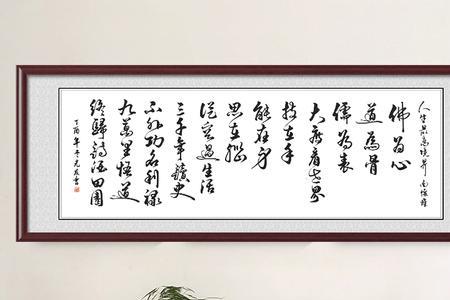 人生最高境界 南懐瑾
佛为心
道為骨
儒為表
大度看世界
技在手
能在身
思在腦
從容過生活
三千年讀史
不外功名利禄
九萬里悟道
終歸詩酒田園
丁酉年